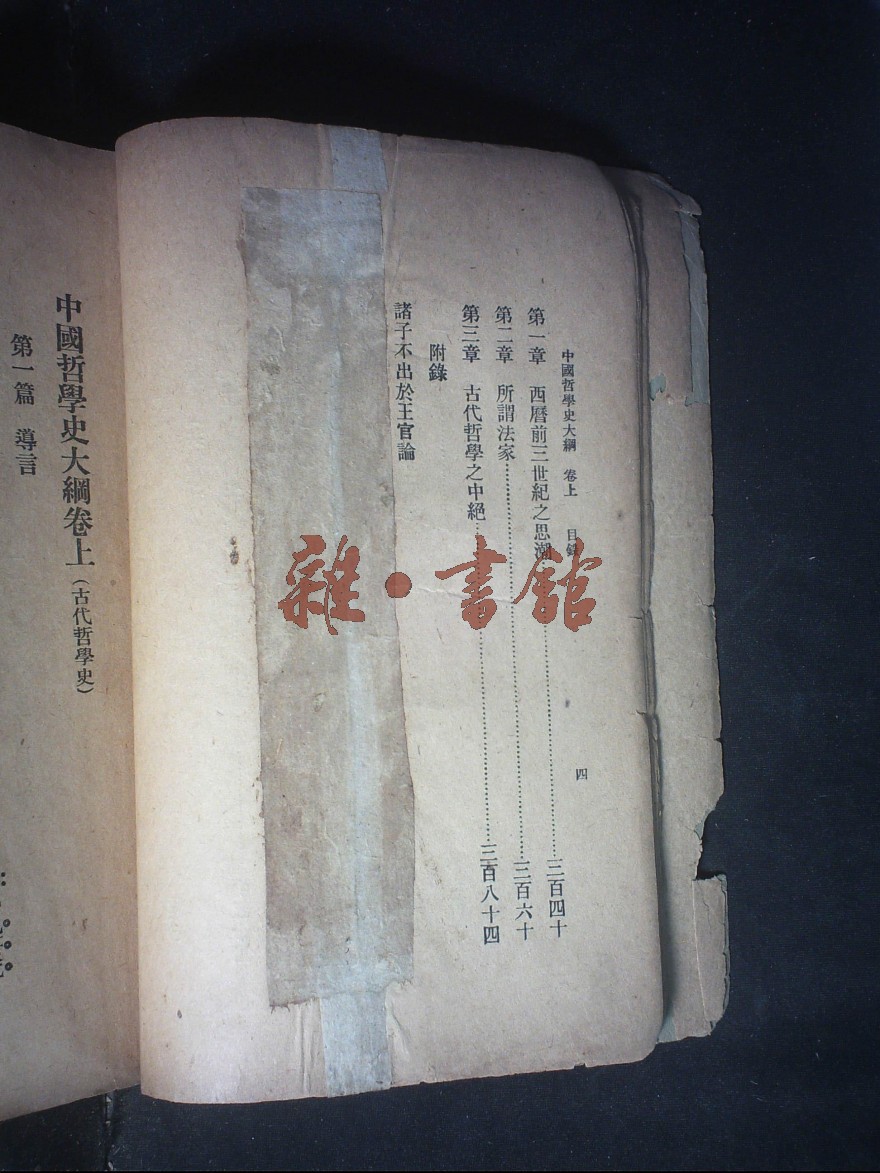 中國哲學史大綱 卷上 目錄 四
第一章 西曆前三世紀之思潮……三百四十
第二章 所謂法家……三百六十
第三章 古代哲學之中絕……三百八十四
附錄
諸子不出於王官論
中國哲學史大綱卷上(古代哲學史)
第一篇 導言
雜·書館